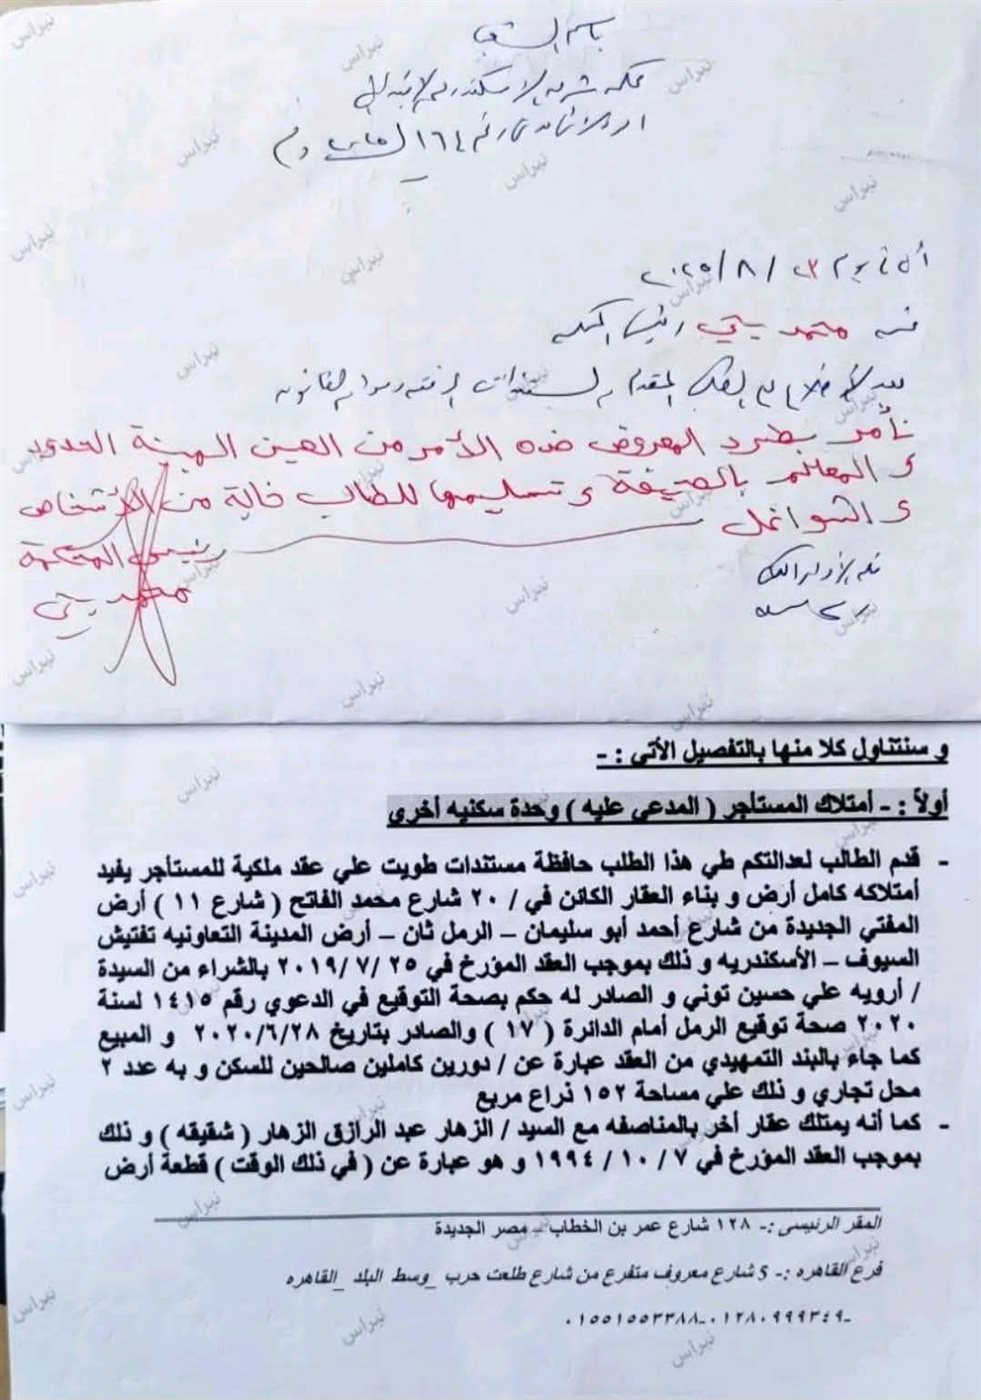 باسم الشعب
محكمة شرق الإسكندرية الابتدائية
رقم ١٦٤ لسنة
أنه في يوم ٢٣ / ٨ / ٢٠٢٥
محمد يحيى رئيس المحكمة
بعد الاطلاع على الطلب المقدم والمستندات المرفقة ومواد القانون
نأمر بطرد المعروض ضده الأمر من العين المبينة الحدود
و المعالم بالصحيفة و تسليمها للطالب خالية من الأشخاص
و الشواغل
رئيس المحكمة
محمد يحيى
و سنتناول كلا منها بالتفصيل الأتى : -
أولاً : - أمتلاك المستأجر ( المدعى عليه ) وحدة سكنيه أخرى
- قدم الطالب لعدالتكم طي هذا الطلب حافظة مستندات طويت علي عقد ملكية للمستأجر يفيد
أمتلاكه كامل أرض و بناء العقار الكائن في / ٢٠ شارع محمد الفاتح ( شارع ١١ ) أرض
المفتي الجديدة من شارع أحمد أبو سليمان – الرمل ثان – أرض المدينة التعاونيه تفتيش
السيوف – الأسكندريه و ذلك بموجب العقد المؤرخ في ٢٥ /٧ /٢٠١٩ بالشراء من السيدة
/ أرويه علي حسين توني و الصادر له حكم بصحة التوقيع في الدعوي رقم ١٤١٥ لسنة
٢٠٢٠ صحة توقيع الرمل أمام الدائرة ( ١٧ ) والصادر بتاريخ ٢٠٢٠/٦/٢٨ و المبيع
كما جاء بالبند التمهيدي من العقد عبارة عن / دورين كاملين صالحين للسكن و به عدد ٢
محل تجاري و ذلك علي مساحة ١٥٢ ذراع مربع
- كما أنه يمتلك عقار أخر بالمناصفه مع السيد / الزهار عبد الرازق الزهار ( شقيقه ) و ذلك
بموجب العقد المؤرخ في ٧ / ١٠ / ١٩٩٤ و هو عبارة عن ( في ذلك الوقت ) قطعة أرض
المقر الرئيسى :- ١٢٨ شارع عمر بن الخطاب – مصر الجديدة
فرع القاهره :- 5 شارع معروف متفرع من شارع طلعت حرب _وسط البلد _القاهره
٠١٥٥١٥٥٣٣٨٨-٠١٢٨٠٩٩٩٣٤٩-
نبراس